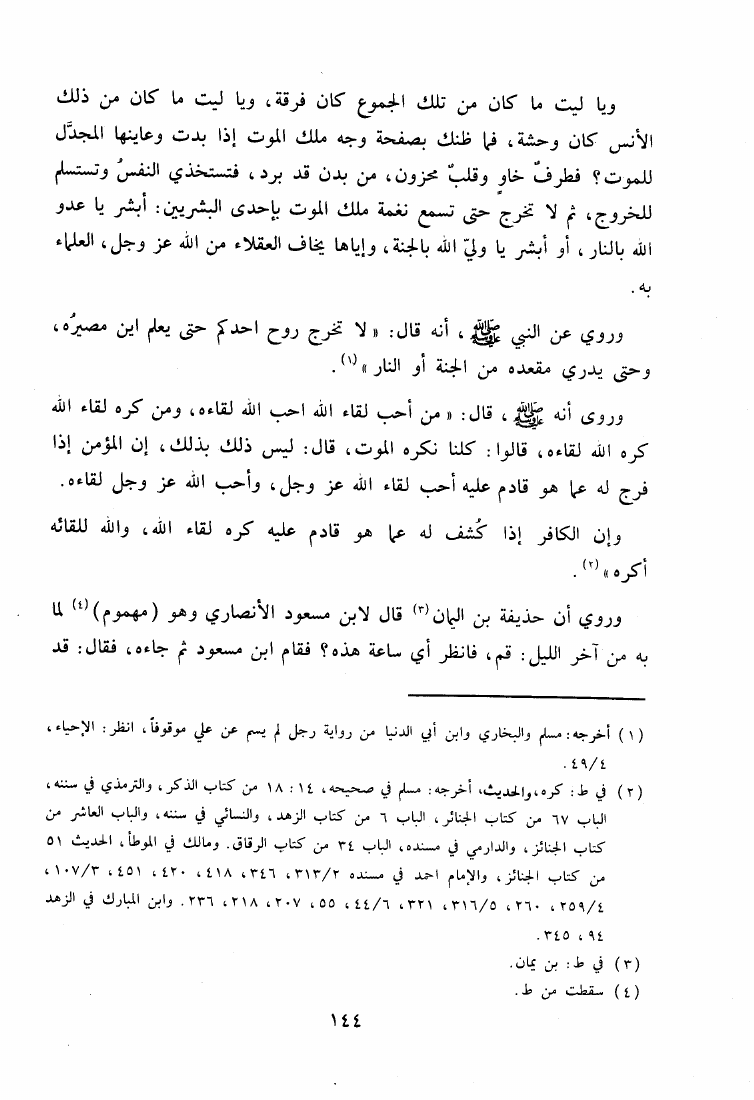 ويا ليت ما كان من تلك الجموع كان فرقة، ويا ليت ما كان من ذلك
الأنس كان وحشة، فما ظنك بصفحة وجه ملك الموت إذا بدت وعاينها المجدَّل
للموت؟ فطرفٌ خاوٍ وقلبٌ محزون، من بدن قد برد، فتستخذي النفسُ وتستسلم
للخروج، ثم لا تخرج حتى تسمع نغمة ملك الموت بإحدى البشريين: أبشر يا عدو
الله بالنار، أو أبشر يا وليّ الله بالجنة، وإياها يخاف العقلاء من الله عز وجل، العلماء
به.
وروي عن النبي ﷺ، أنه قال: « لا تخرج روح احدكم حتى يعلم اين مصيرُه،
وحتى يدري مقعده من الجنة أو النار »(١).
وروى أنه ﷺ، قال: « من أحب لقاء الله احب الله لقاءه، ومن كره لقاء الله
كره الله لقاءه، قالوا: كلنا نكره الموت، قال: ليس ذلك بذلك، إن المؤمن إذا
فرج له عما هو قادم عليه أحب لقاء الله عز وجل، وأحب الله عز وجل لقاءه.
وإن الكافر إذا كُشف له عما هو قادم عليه كره لقاء الله، والله للقائه
أكره»(٢).
وروي أن حذيفة بن اليمان(٣) قال لابن مسعود الأنصاري وهو (مهموم)(٤) لما
به من آخر الليل: قم، فانظر أي ساعة هذه؟ فقام ابن مسعود ثم جاءه، فقال: قد
(١) أخرجه: مسلم والبخاري وابن أبي الدنيا من رواية رجل لم يسم عن علي موقوفاً، انظر: الإحياء،
٤٩/٤.
(٢) في ط: كره، والحديث، أخرجه: مسلم في صحيحه، ١٤: ١٨ من كتاب الذكر، والترمذي في سننه،
الباب ٦٧ من كتاب الجنائز، الباب ٦ من كتاب الزهد، والنسائي في سننه، والباب العاشر من
كتاب الجنائز، والدارمي في مسنده، الباب ٣٤ من كتاب الرقاق. ومالك في الموطأ، الحديث ٥١
من كتاب الجنائز، والإمام احمد في مسنده ٣١٣/٢، ٣٤٦، ٤١٨، ٤٢٠، ٤٥١، ١٠٧/٣،
٢٥٩/٤، ٢٦٠، ٣١٦/٥، ٣٢١، ٤٤/٦، ٥٥، ٢٠٧، ٢١٨، ٢٣٦. وابن المبارك في الزهد
٩٤، ٣٤٥.
(٣) في ط: بن يمان.
(٤) سقطت من ط.
١٤٤